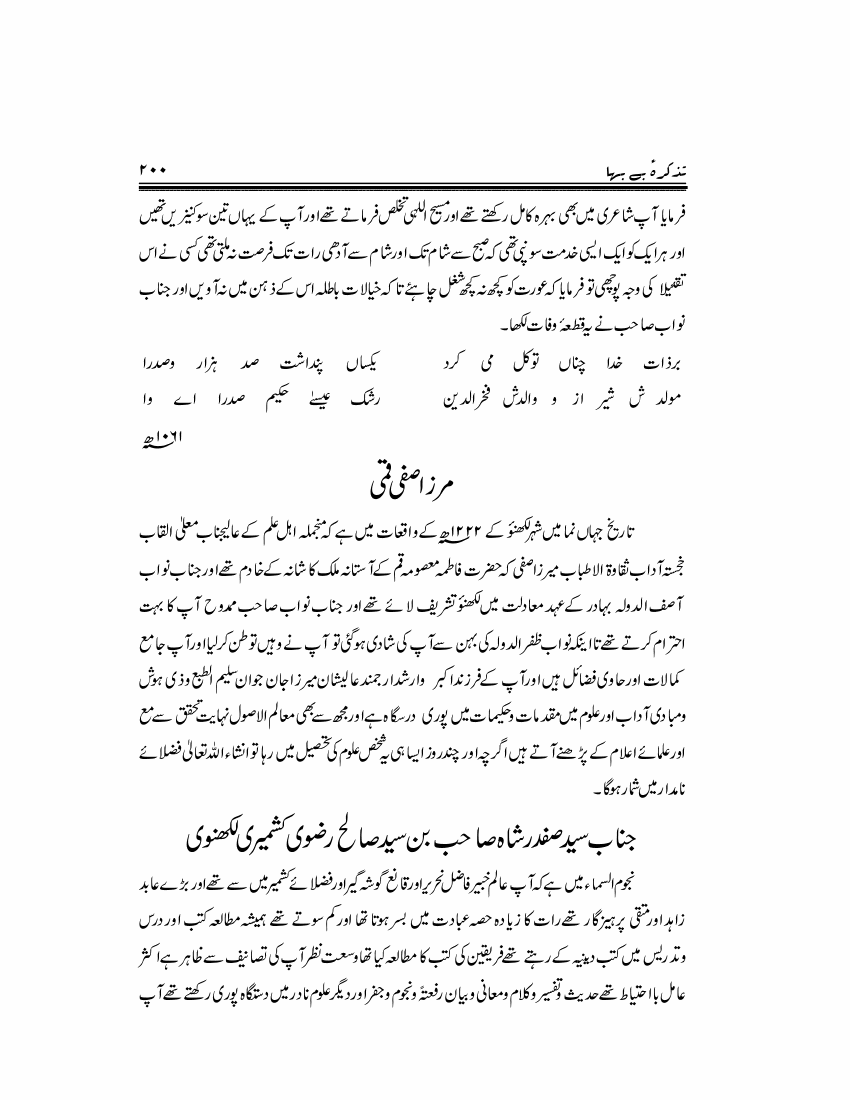 تذکرۂ بے بہا ۲۰۰
فرمایا آپ شاعری میں بھی بہرہ کامل رکھتے تھے اور مسیح اللہی تخلص فرماتے تھے اور آپ کے یہاں تین سو کنیزیں تھیں
اور ہر ایک کو ایک ایسی خدمت سونپی تھی کہ صبح سے شام تک اور شام سے آدھی رات تک فرصت نہ ملتی تھی کسی نے اس
کی وجہ پوچھی تو فرمایا کہ عورت کو کچھ نہ کچھ شغل چاہئے تا کہ خیالات باطلہ اس کے ذہن میں نہ آویں اور جناب
نواب صاحب نے یہ قطعۂ وفات لکھا۔
برذات خدا چناں توکل می کرد یکساں پنداشت صد ہزار وصدرا
مولد ش شیر از و والدش فخرالدین رشک عیسےٰ حکیم صدرا اے وا
۱۰۶۱ھ
مرزا صفی قمی
تاریخ جہاں نما میں شہر لکھنؤ کے ۱۲۲۲ھ کے واقعات میں ہے کہ منجملہ اہل علم کے عالیجناب معلیٰ القاب
خجستہ آداب نقاوۃ الاطیاب میرزا صفی کہ حضرت فاطمہ معصومہ قم کے آستانہ ملک کا شانہ کے خادم تھے اور جناب نواب
آصف الدولہ بہادر کے عہد معادلت میں لکھنؤ تشریف لائے تھے اور جناب نواب صاحب ممدوح آپ کا بہت
احترام کرتے تھے تا اینکہ نواب ظفر الدولہ کی بہن سے آپ کی شادی ہوگئی تو آپ نے وہیں توطن کرلیا اور آپ جامع
کمالات اور حاوی فضائل ہیں اور آپ کے فرزند اکبر وارشد ارجمند عالیشان میرزا جان جوان سلیم الطبع وذی ہوش
ومبادی آداب اور علوم میں مقدمات وحکیمات میں پوری درسگاہ ہے اور مجھ سے بھی معالم الاصول نہایت تحقق سے مع
اور علمائے اعلام کے پڑھنے آتے ہیں اگرچہ اور چند روز ایسا ہی یہ شخص علوم کی تحصیل میں رہا تو انشاء اللہ تعالیٰ فضلائے
نامدار میں شمار ہوگا۔
جناب سید صفدر شاہ صاحب بن سید صالح رضوی کشمیری لکھنوی
نجوم السماء میں ہے کہ آپ عالم خبیر فاضل نحریر اور قانع گوشہ گیر اور فضلائے کشمیر میں سے تھے اور بڑے عابد
زاہد اور متقی پرہیزگار تھے رات کا زیادہ حصہ عبادت میں بسر ہوتا تھا اور کم سوتے تھے ہمیشہ مطالعہ کتب اور درس
وتدریس میں کتب دینیہ کے رہتے تھے فریقین کی کتب کا مطالعہ کیا تھا وسعت نظر آپ کی تصانیف سے ظاہر ہے اکثر
عامل با احتیاط تھے حدیث وتفسیر وکلام ومعانی وبیان ونجوم وجفر اور دیگر علوم نادر میں دستگاہ پوری رکھتے تھے آپ